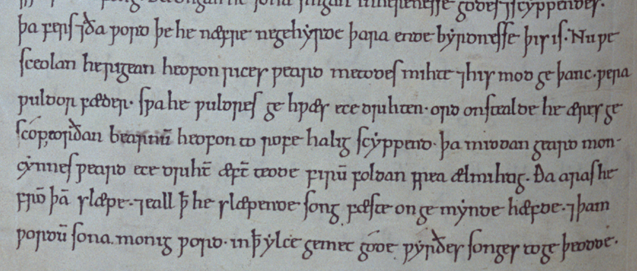 ongan he sona singan inherenesse godes scyppendes.
þa fers ⁊ða word þe he næfre negehyrde þara endebyrdnesse þis is. Nu we
sceolan herigean heofon rices weard metodes mihte ⁊his mod ge þanc. wera
wuldor fæder. swa he wuldres ge hwæs ece drihten. ord onstealde he æres ge
sceop eorðan bearnū heofon to rofe halig scyppend. þa middan geard mon-
cynnes weard ece driht̄ æft̄ teode firū foldan frea ælmihtig. Ða aras he
frō þā slæpe. ⁊eall ꝥ he slæpende song fæste on ge mynde hæfde. ⁊þam
wordū sona. monig word. in ꝥ ylce gemet gode wyrðes songes to ge þeodde.